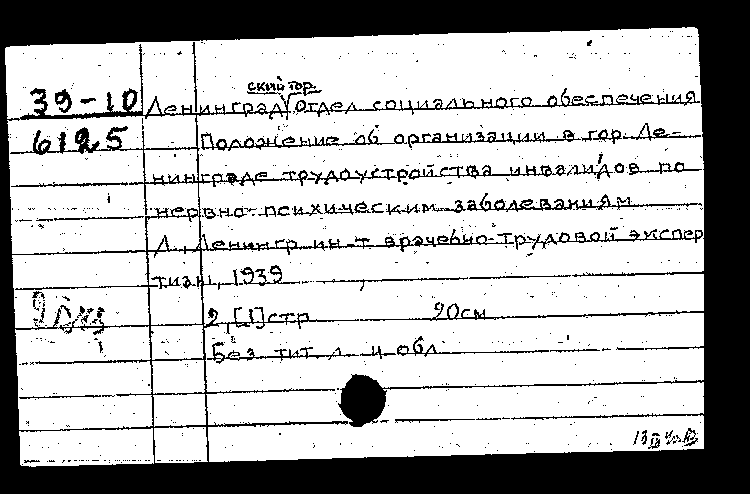 ский гор.
39-10 Ленинград отдел социального обеспечения
6125 Положение об организации в гор. Ле-
нинграде трудоустройства инвалидов по
нервно-психическим заболеваниям
Л., Ленингр. ин-т врачебно-трудовой экспер
тизы, 1939
2, [1] стр 20см
Без тит. л. и обл.